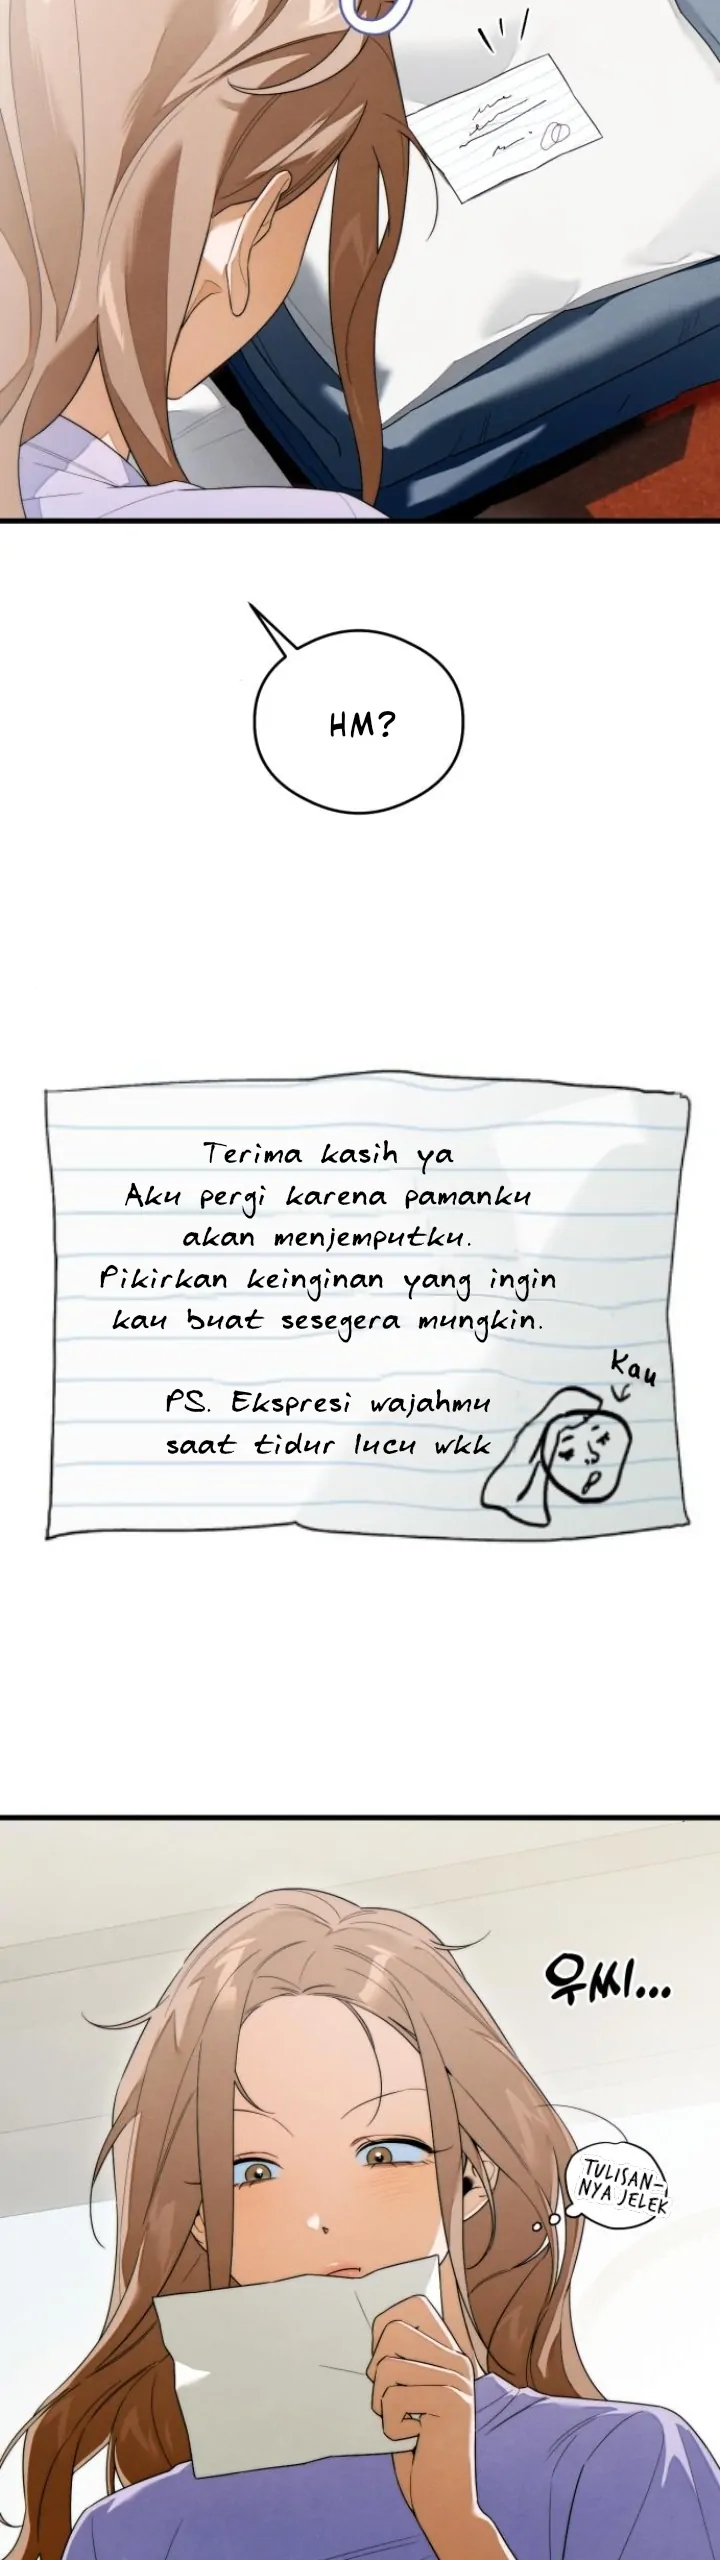 HM?
Terima kasih ya
Aku pergi karena pamanku
akan menjemputku.
Pikirkan keinginan yang ingin
kau buat sesegera mungkin.
Kau
PS. Ekspresi wajahmu
saat tidur lucu wkk
우씨...
TULISAN-
NYA JELEK